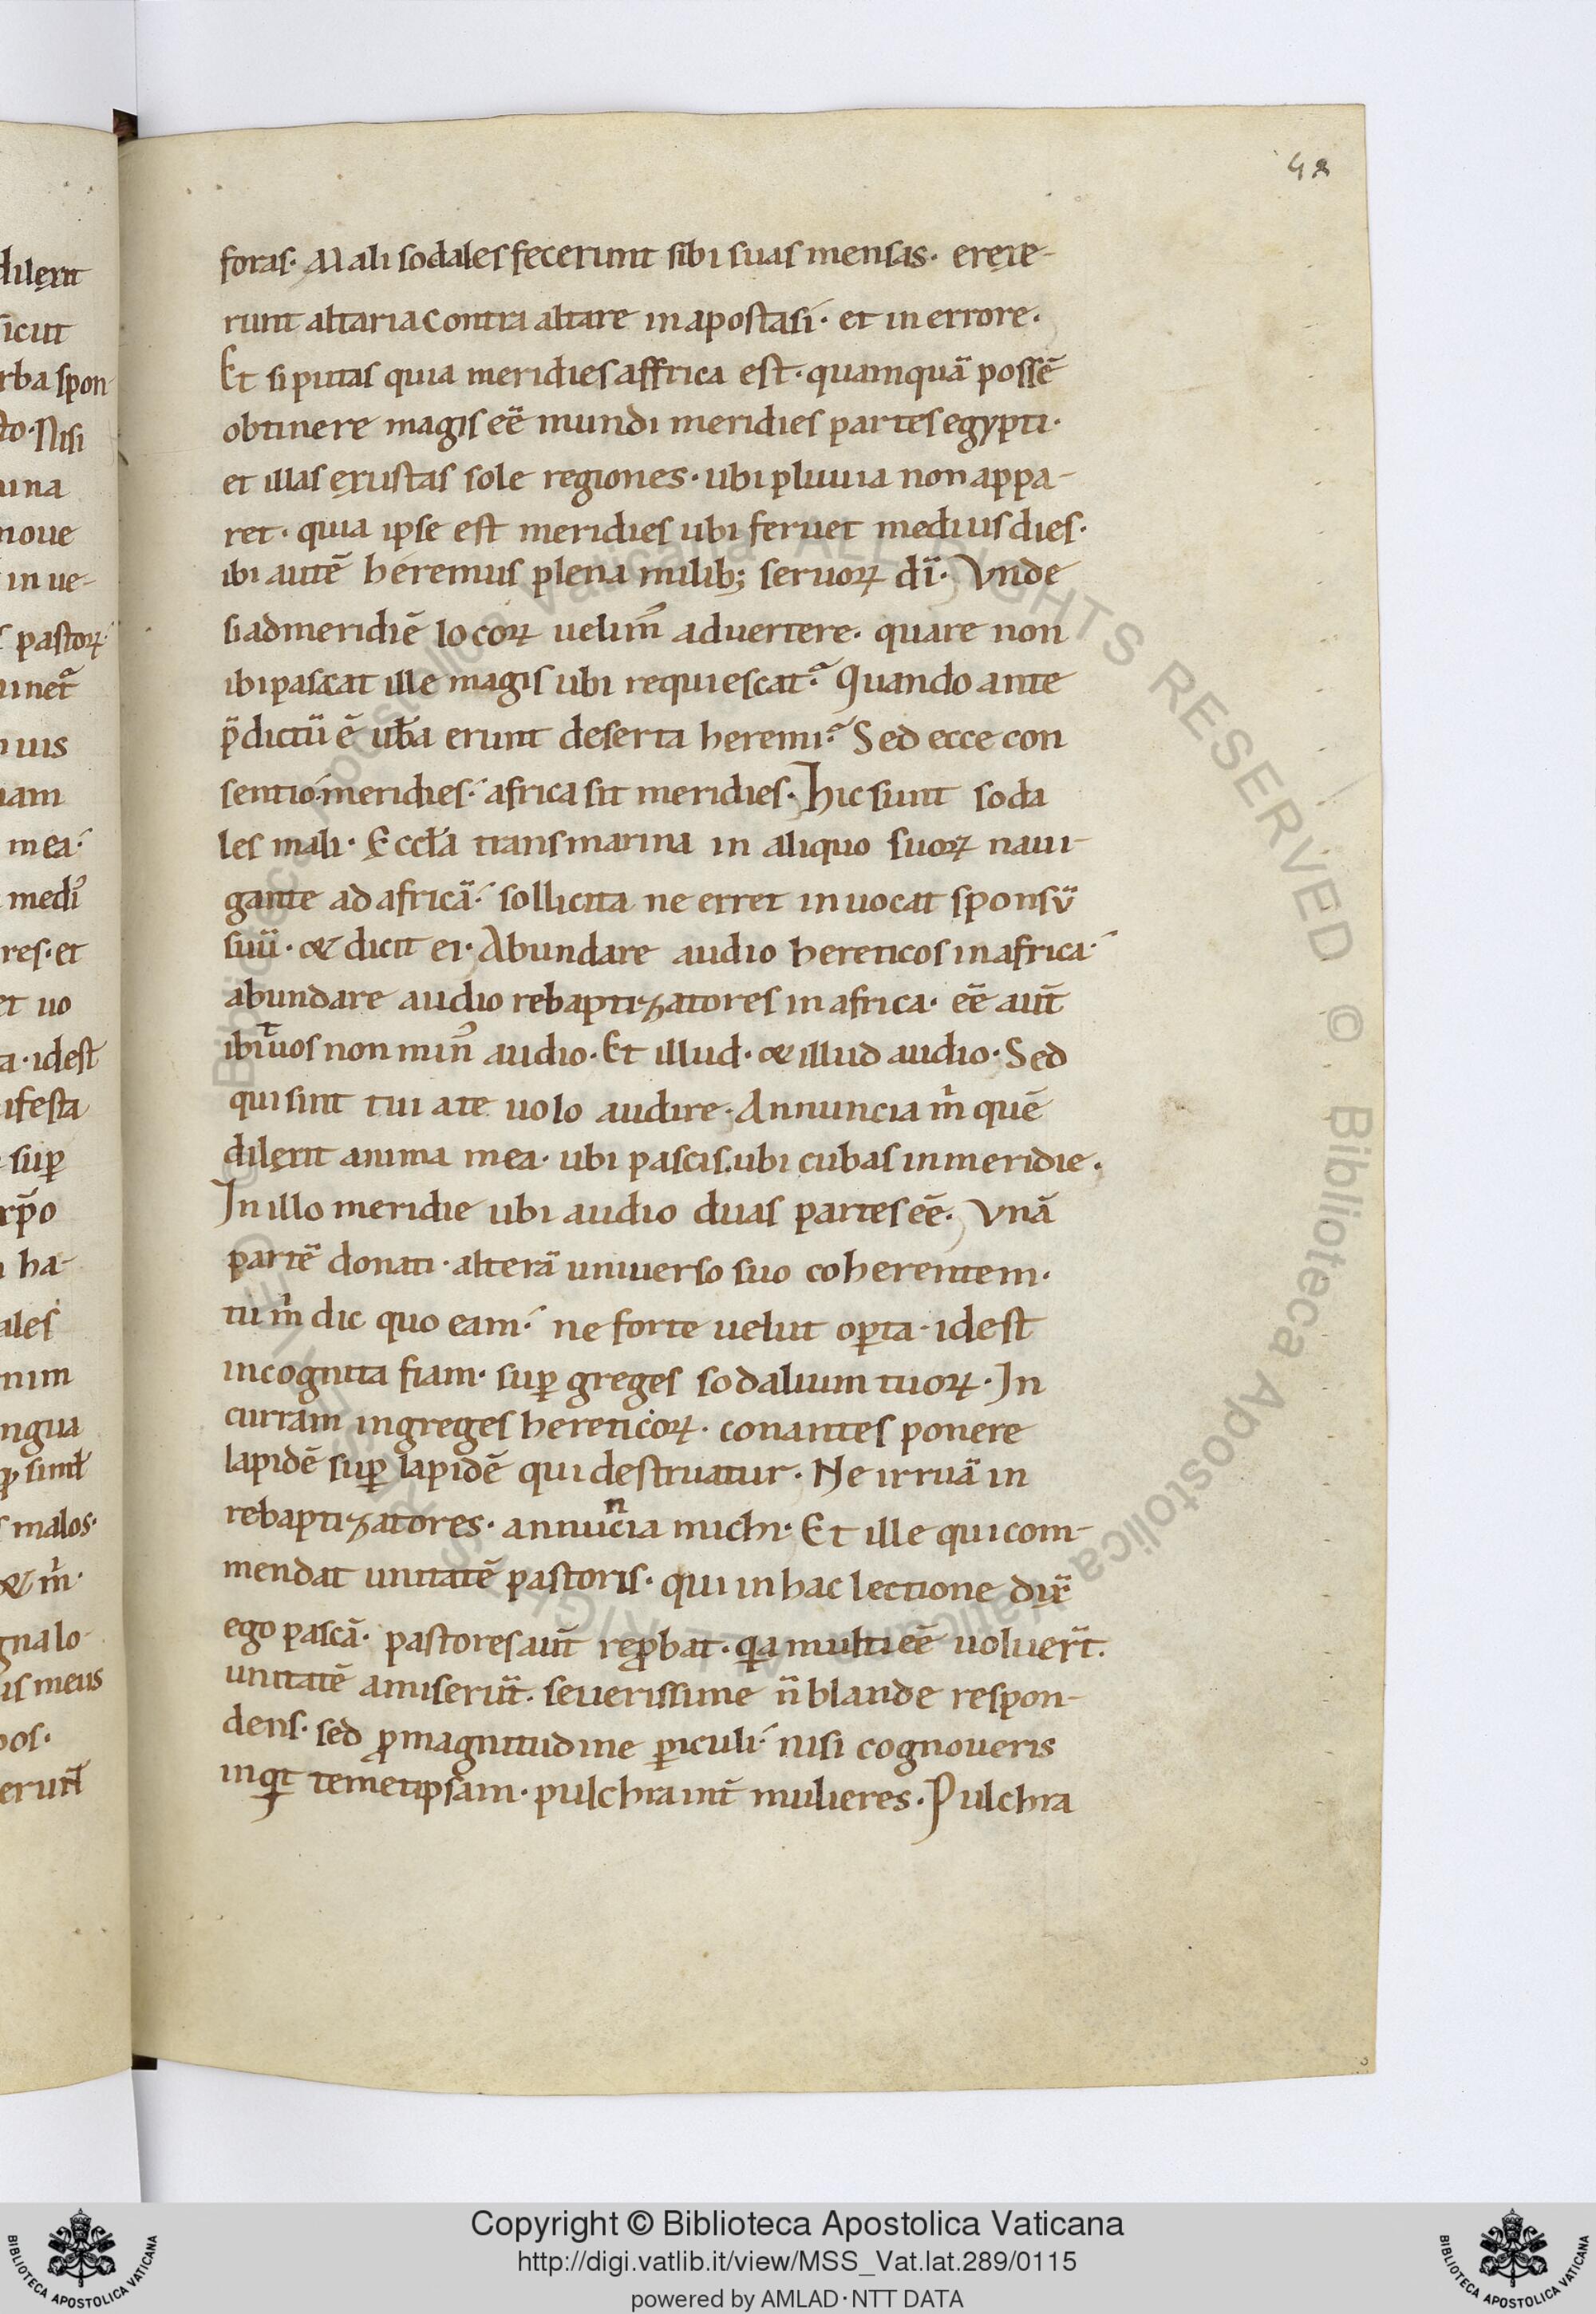 42
foras. Mali sodales fecerunt sibi suas mensas. erexe-
runt altaria contra altare in apostasi. et in errore.
Et si putas quia meridies affrica est. quamquā possē
obtinere magis eē mundi meridies partes egypti.
et illas exustas sole regiones. ubi pluuia non appa-
ret. quia ipse est meridies ubi feruet medius dies.
ibi autē heremus plena milib; seruoꝝ dī. Vnde
si ad meridiē locoꝝ uelim᾽ aduertere. quare non
ibi pascat ille magis ubi requiescat? Quando ante
p̄dictū ē ub̄a erunt deserta heremi? Sed ecce con
sentio. meridies. africa sit meridies. Hic sunt soda
les mali. Eccła transmarina in aliquo suoꝝ naui-
gante ad africā. sollicita ne erret inuocat sponsū
suū. & dicit ei. Abundare audio hereticos in africa.
abundare audio rebaptizatores in africa. eē aut̄
ibi tuos non min᾽ audio. Et illud. & illud audio. Sed
qui sint tui a te uolo audire. Annuncia m̄ quē
dilexit anima mea. ubi pascis. ubi cubas in meridie.
In illo meridie ubi audio duas partes eē. Vnā
partē donati. alterā uniuerso suo coherentem.
tu m̄ dic quo eam. ne forte uelut oꝑta. idest
incognita fiam. suꝑ greges sodalium tuoꝝ. In
curram in greges hereticoꝝ. conantes ponere
lapidē suꝑ lapidē qui destruatur. Ne irruā in
rebaptizatores. annuncia michi. Et ille qui com-
mendat unitatē pastoris. qui in hac lectione dix̄
ego pascā. pastores aut̄ reꝓbat. qa multi eē uoluer̄t.
unitatē amiserūt. seuerissime n̄ blande respon-
dens. sed ꝓ magnitudine ꝑiculi. nisi cognoueris
inqt temetipsam. pulchra int̄ mulieres. Pulchra
dilexit
sicut
rba spon
to. Nisi
una
noue
in ue-
pastoꝝ
uis
iam
mea.
res. et
et uo
a. idest
ifesta
suꝑ
ha-
ales
nim
ngua
malos.
& m̄.
gna lo-
is meus
os.
Copyright © Biblioteca Apostolica Vaticana
http://digi.vatlib.it/view/MSS_Vat.lat.289/0115
powered by AMLAD·NTT DATA
BIBLIOTECA APOSTOLICA VATICANA
BIBLIOTECA APOSTOLICA VATICANA
© Biblioteca Apostolica Vaticana ALL RIGHTS RESERVED © Biblioteca Apostolica Vaticana ALL RIGHTS RESERVED